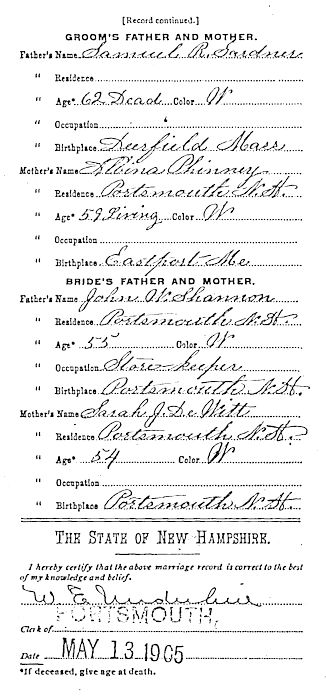 [Record continued.]
GROOM'S FATHER AND MOTHER.
Father's Name Samuel R. Gardner
" Residence
" Age* 62 Dead Color W
" Occupation
" Birthplace Deerfield Mass
Mother's Name Albina Phinney
" Residence Portsmouth N.H.
" Age* 59 Living Color W
" Occupation
" Birthplace Eastport Me
BRIDE'S FATHER AND MOTHER.
Father's Name John W. Shannon
" Residence Portsmouth N.H.
" Age* 55 Color W
" Occupation Store-keeper
" Birthplace Portsmouth N.H.
Mother's Name Sarah J. De Witt
" Residence Portsmouth N.H.
" Age* 54 Color W
" Occupation
" Birthplace Portsmouth N.H.
THE STATE OF NEW HAMPSHIRE.
I hereby certify that the above marriage record is correct to the best
of my knowledge and belief.
W E Underhill
PORTSMOUTH,
Clerk of
Date MAY 13 1905
*If deceased, give age at death.